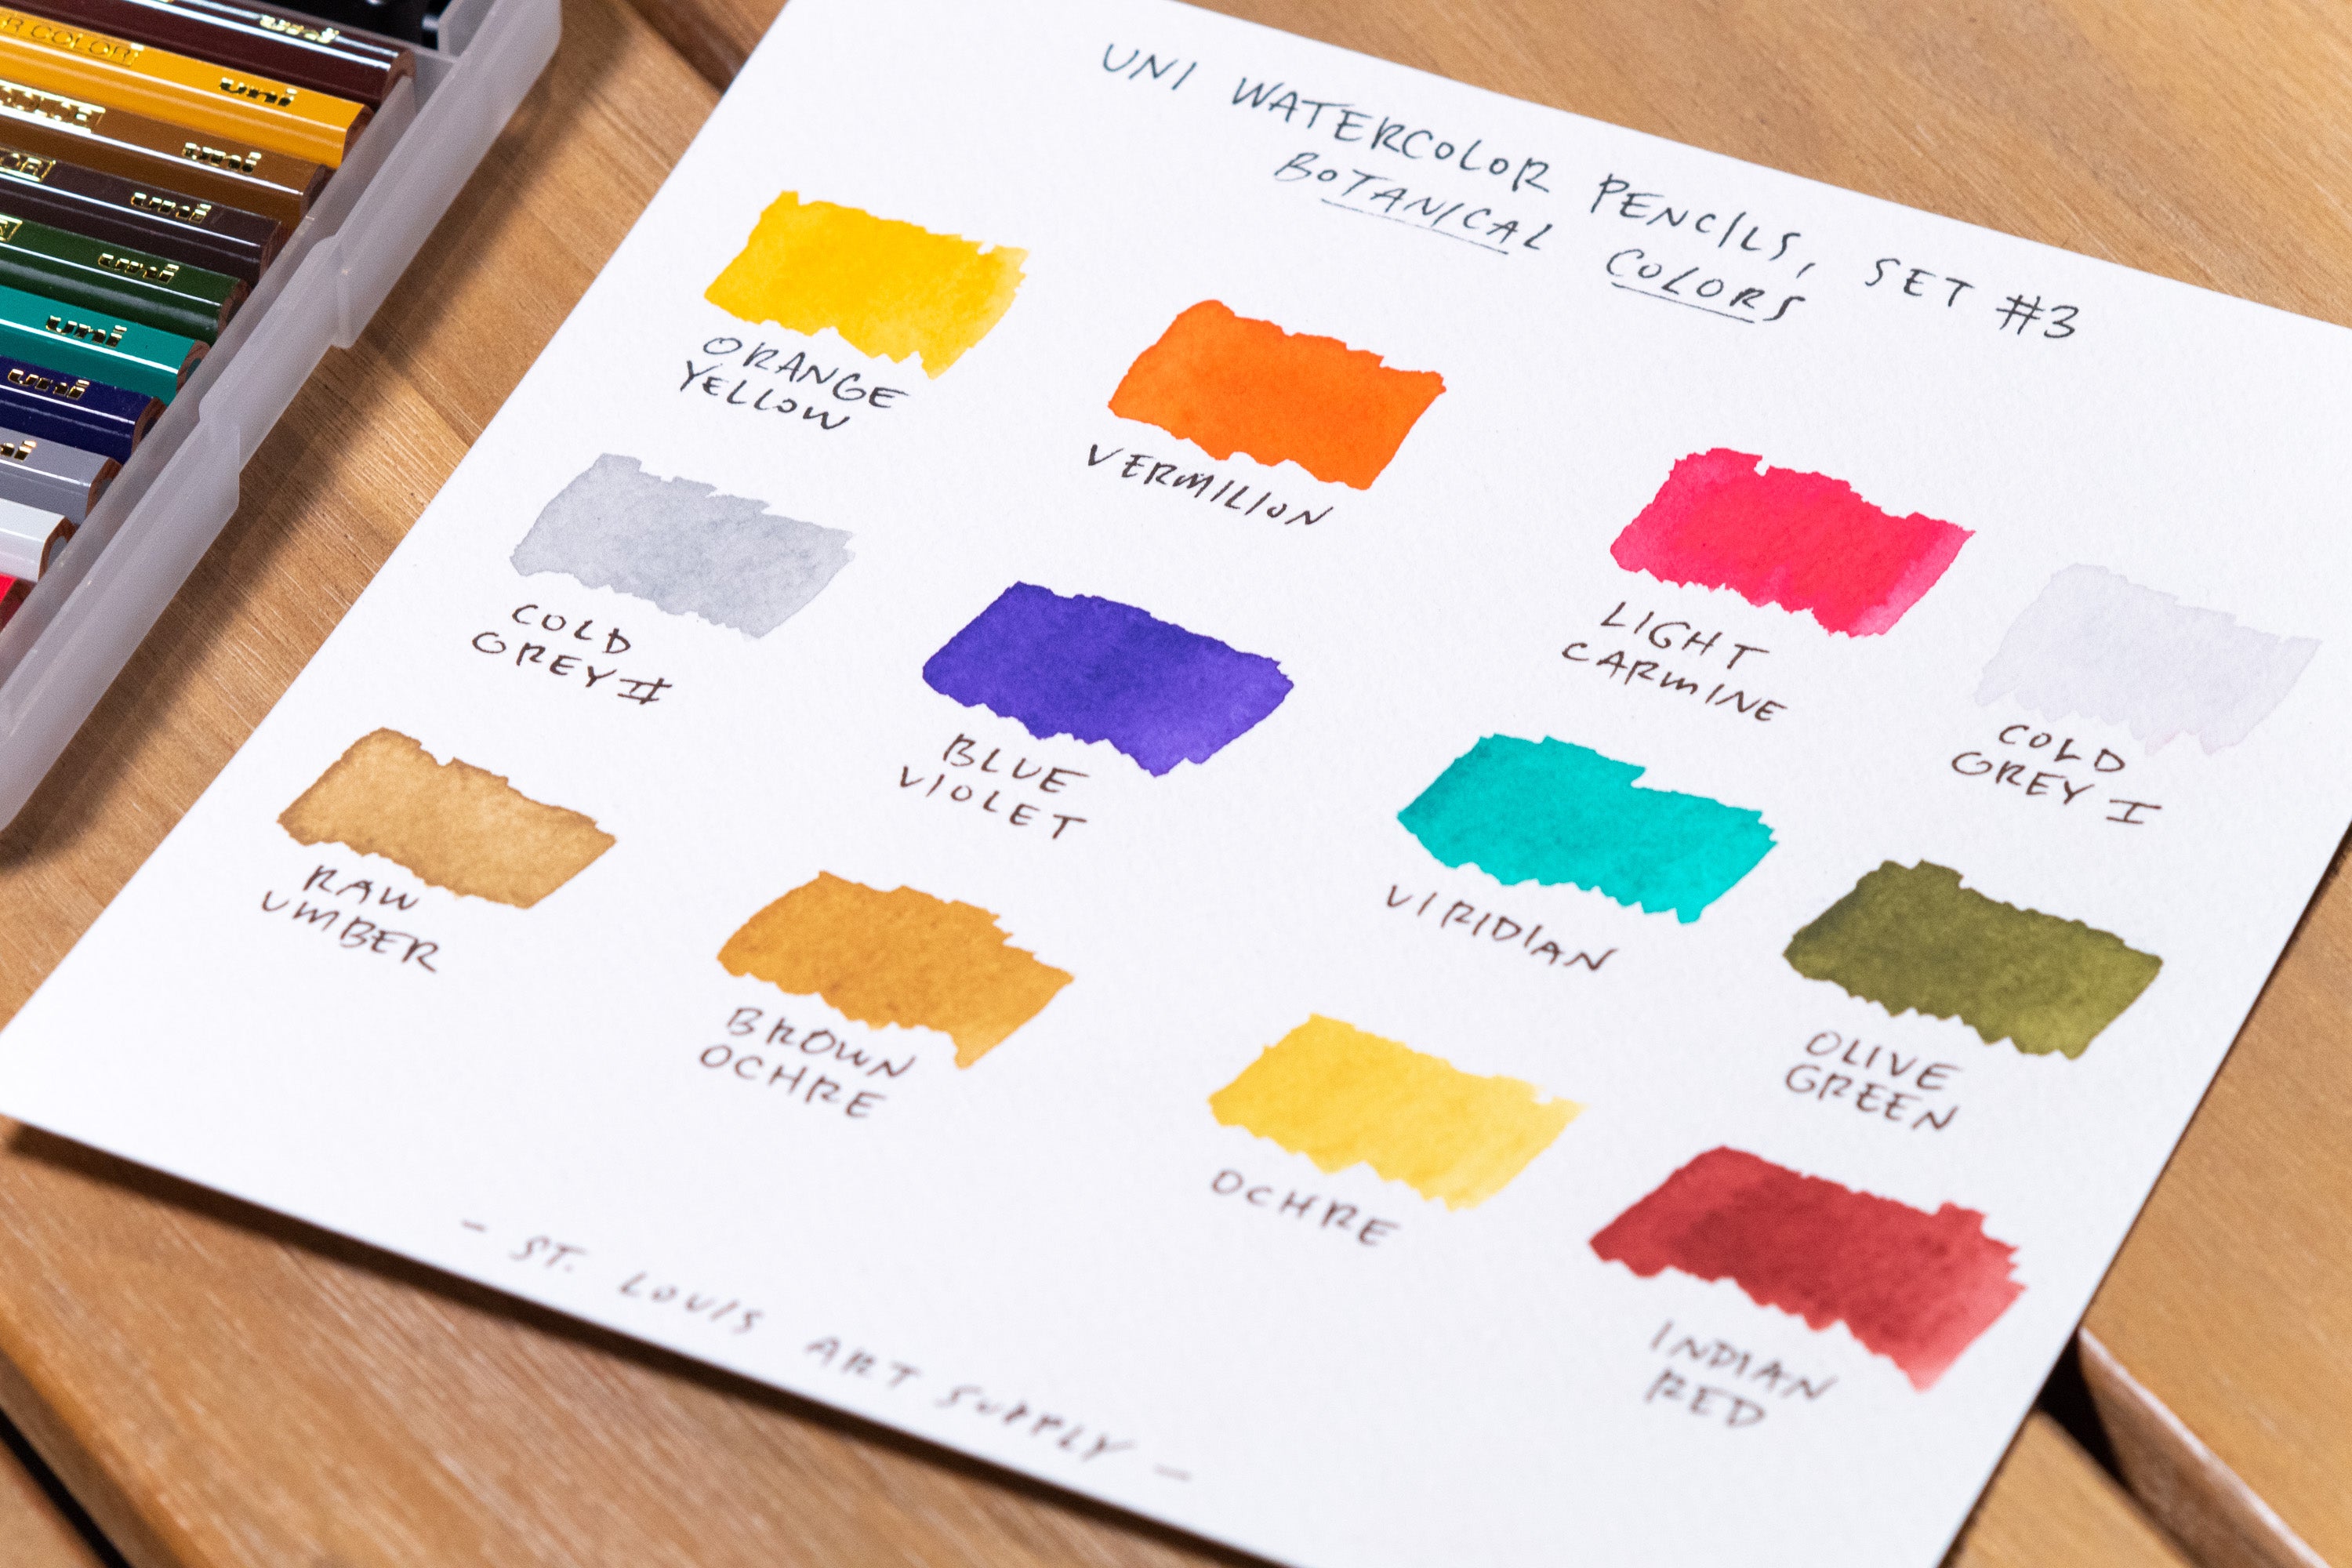 UNI WATERCOLOR PENCILS, SET #3
BOTANICAL COLORS
ORANGE
YELLOW
VERMILION
LIGHT
CARMINE
COLD
GREY I
COLD
GREY II
BLUE
VIOLET
VIRIDIAN
OLIVE
GREEN
RAW
UMBER
BROWN
OCHRE
OCHRE
INDIAN
RED
- ST. LOUIS ART SUPPLY -
uni
R COLOR
uni
uni
uni
uni
uni
uni